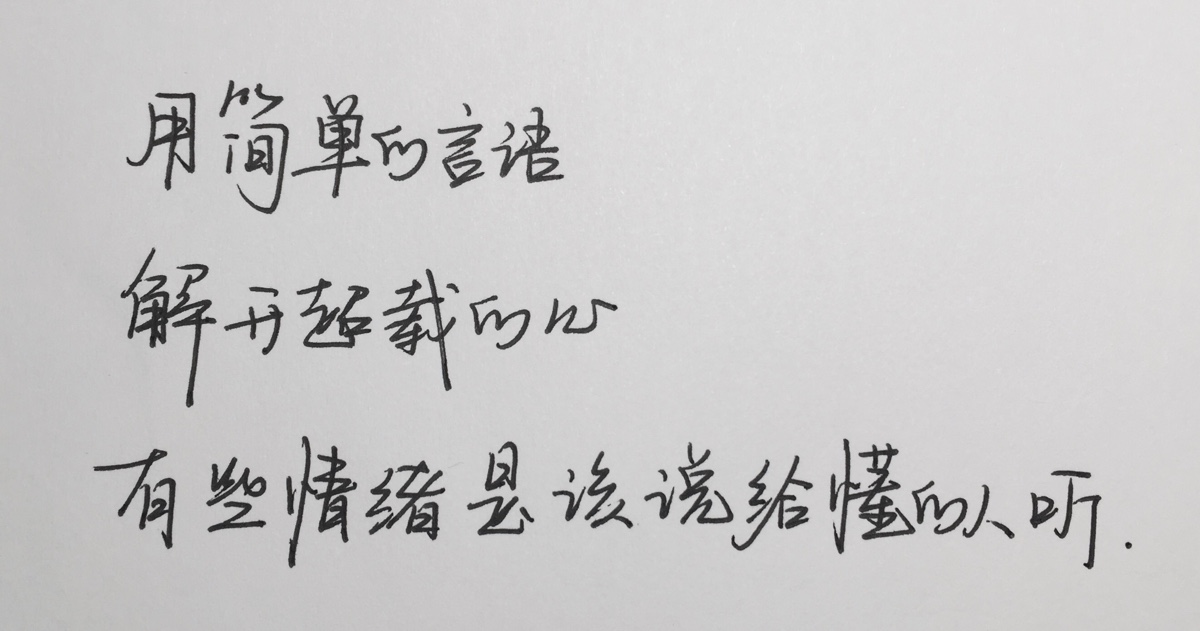 用简单的言语
解开超载的心
有些情绪是该说给懂的人听.